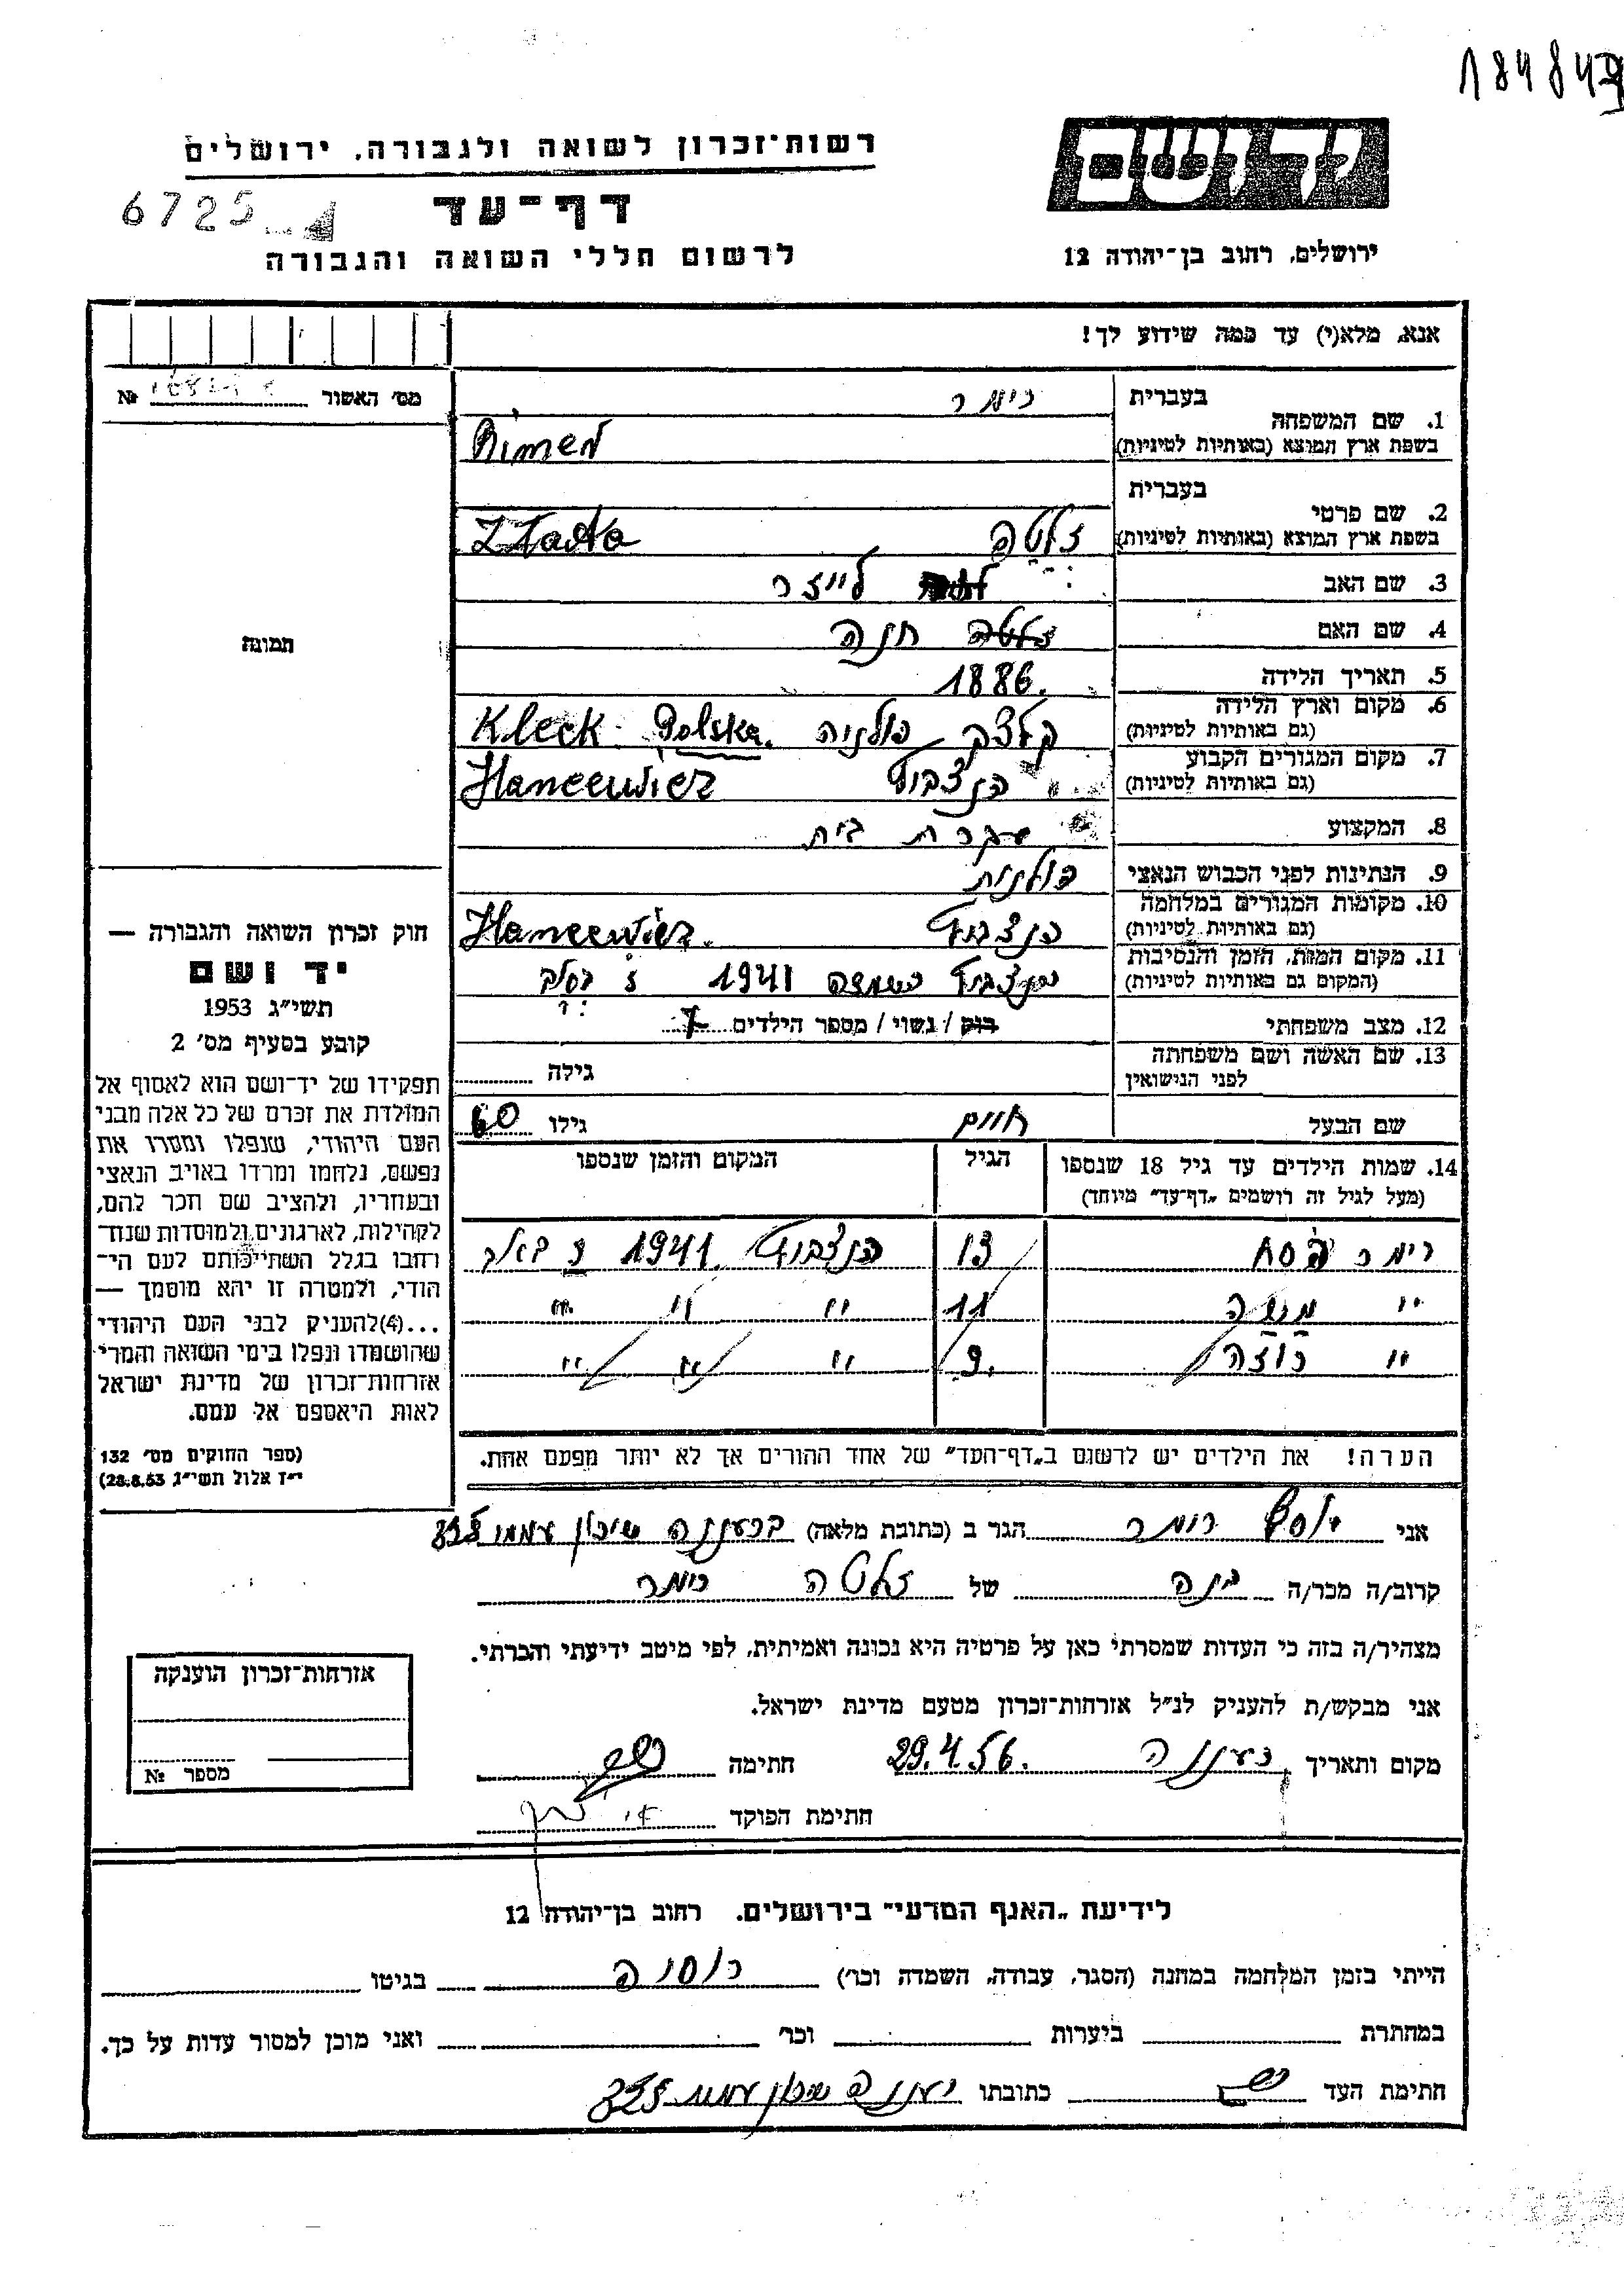 רשות־זכרון לשואה ולגבורה, ירושלים
יד ושם
6725
דף־עד
לרשום חללי השואה והגבורה
ירושלים, רחוב בן־יהודה 12
אנא, מלא(י) עד כמה שידוע לך!
מס׳ האשור № 
בעברית רימר
1. שם המשפחה
בשפת ארץ המוצא (באותיות לטיניות) Rimer
בעברית
2. שם פרטי
בשפת ארץ המוצא (באותיות לטיניות) זלטה Zlata
3. שם האב לייזר
4. שם האם זלטה חנה
5. תאריך הלידה 1886.
6. מקום וארץ הלידה
(גם באותיות לטיניות) קלצק פולניה Kleck Polska.
7. מקום המגורים הקבוע
(גם באותיות לטיניות) הנצבוץ Hancewicz
8. המקצוע עקרת בית
9. הנתינות לפני הכבוש הנאצי פולנית
10. מקומות המגורים במלחמה
(גם באותיות לטיניות) Hancewicz.
11. מקום המות, הזמן והנסיבות
(המקום גם באותיות לטיניות) 1941
12. מצב משפחתי רוק / נשוי / מספר הילדים 7
13. שם האשה ושם משפחתה
לפני הנישואין
גילה
שם הבעל חיים גילו 60
14. שמות הילדים עד גיל 18 שנספו
(מעל לגיל זה רושמים „דף־עד״ מיוחד)
הגיל
המקום והזמן שנספו
רימר פסח 13 1941
״ 11 ״ ״ ״
״ רוזה 9. ״ ״ ״
הערה! את הילדים יש לרשום ב„דף־העד״ של אחד ההורים אך לא יותר מפעם אחת.
תמונה
חוק זכרון השואה והגבורה —
יד ושם
תשי״ג 1953
קובע בסעיף מס׳ 2
תפקידו של יד־ושם הוא לאסוף אל
המולדת את זכרם של כל אלה מבני
העם היהודי, שנפלו ומסרו את
נפשם, נלחמו ומרדו באויב הנאצי
ובעוזריו, ולהציב שם וזכר להם,
לקהילות, לארגונים ולמוסדות שנח־
רבו בגלל השתייכותם לעם הי־
הודי, ולמטרה זו יהא מוסמך —
...(4) להעניק לבני העם היהודי
שהושמדו ונפלו בימי השואה והמרי
אזרחות־זכרון של מדינת ישראל
לאות היאספם אל עמם.
(ספר החוקים מס׳ 132
י״ז אלול תשי״ג 28.8.53)
אני יוסף רימר הגר ב (כתובת מלאה) ברעננה שיכון עממי
קרוב/ה מכר/ה בנה של זלטה רימר
מצהיר/ה בזה כי העדות שמסרתי כאן על פרטיה היא נכונה ואמיתית, לפי מיטב ידיעתי והכרתי.
אני מבקש/ת להעניק לנ״ל אזרחות־זכרון מטעם מדינת ישראל.
מקום ותאריך רעננה 29.4.56. חתימה
חתימת הפוקד
אזרחות־זכרון הוענקה
מספר №
לידיעת „האגף המדעי״ בירושלים. רחוב בן־יהודה 12
הייתי בזמן המלחמה במחנה (הסגר, עבודה, השמדה וכר׳) רוסיה בגיטו
במחתרת ביערות וכר׳ ואני מוכן למסור עדות על כך.
חתימת העד כתובתו רעננה שיכון עממי